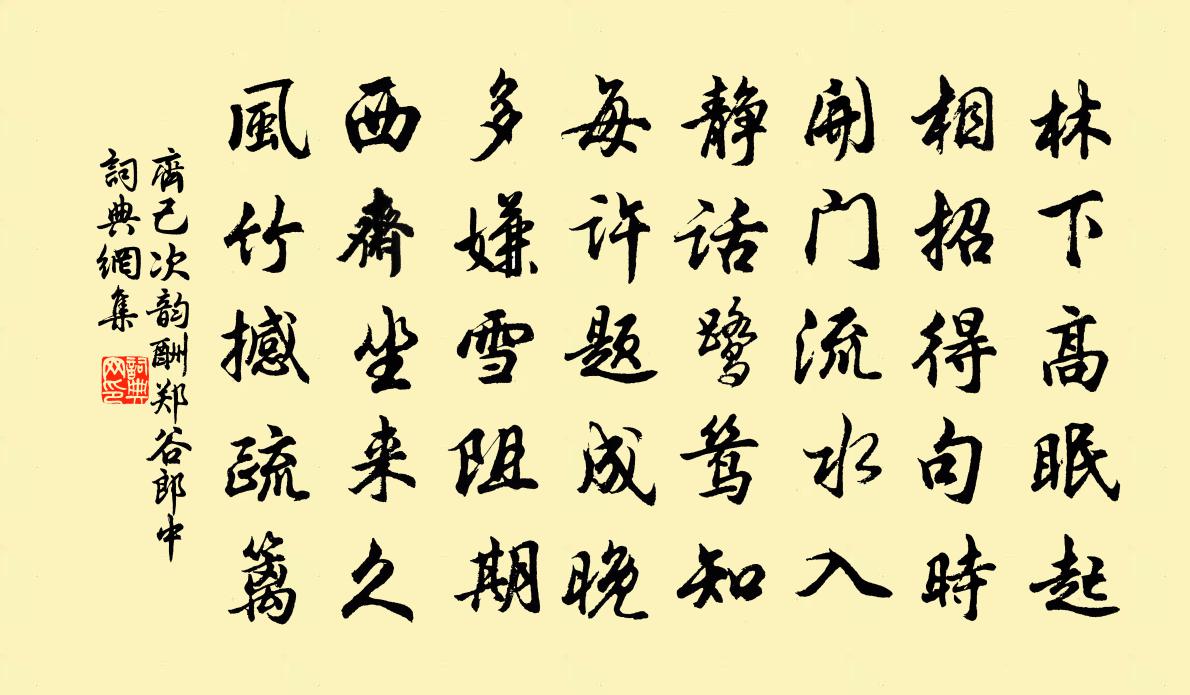 林下高眠起
相招得句時
開门流水入
静话鹭鸶知
每许题成晚
多嫌雪阻期
西齋坐来久
風竹撼疏篱
齊己次韵酬郑谷郎中
詞典網集
詞典
网印